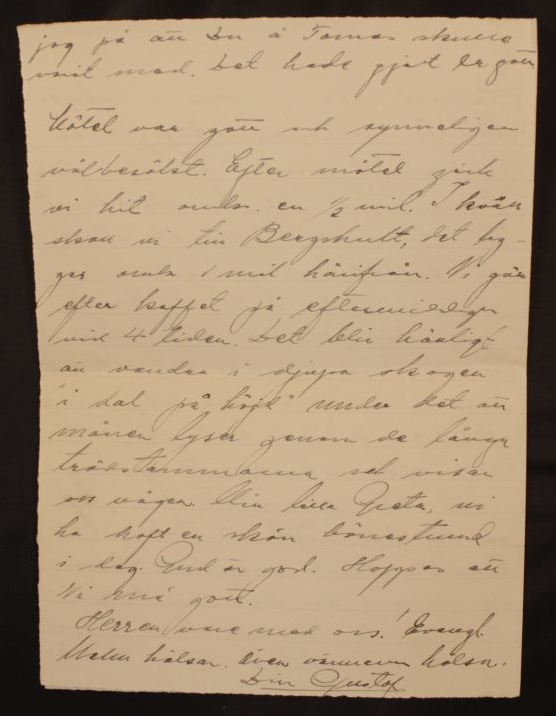 jag på att Du å Tomas skulle
varit med. Det hade gjort Er gott.
Mötet var gott och synnerligen
välbesökt. Efter mötet gick
vi hit omkr. en 1/2 mil. I kväll
skall vi till Bergshult, det lig-
ger omkr 1 mil härifrån. Vi går
efter kaffet på eftermiddagen
vid 4 tiden. Det blir härligt
att vandra i djupa skogen
"i dal på höjd" under det att
månen lyser genom de långa
trädstammarna och visar
oss vägen. Min lilla Greta, vi
ha haft en skön bönestund
i dag. Gud är god. Hoppas att
Ni må gott.
Herren vare med oss! Evangl.
Malm hälsar. Även vännerna hälsa.
Din Gustof